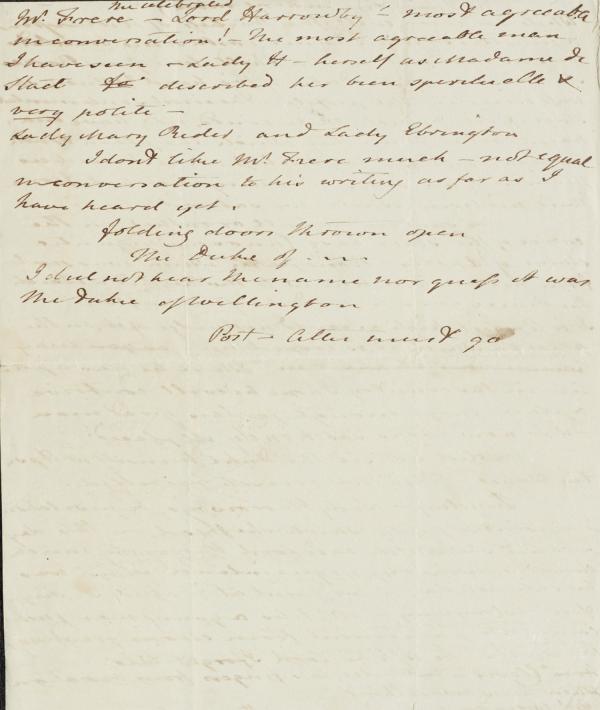 the celebrated
Mr. Frere – Lord Harrowby! – most agreeable
in conversation! – the most agreeable man
I have seen – Lady H – herself as Madame de
Stael described her been spirituelle &
very polite –
Lady Mary Rider and Lady Ebrington
I don't like Mr. Frere much – not equal
in conversation to his writing as far as I
have heard yet.
folding doors thrown open
The Duke of . –. –.
I did not hear the name nor guess it was
the Duke of Wellington
Post – must go